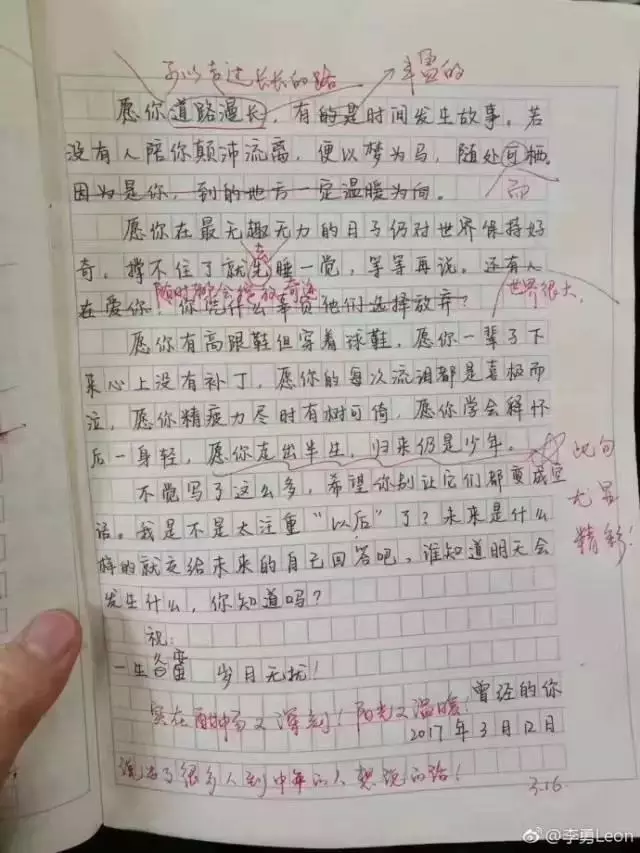 可以走过长长的路 丰富的
愿你道路漫长，有的是时间发生故事。若
没有人陪你颠沛流离，便以梦为马，随处可栖。
因为是你，到的地方一定温暖为向。 而
愿你在最无趣无力的日子仍对世界保持好
奇，撑不住了就先睡一觉，等等再说。还有人
随时都会提放奇迹 世界很大，
在爱你！你凭什么辜负他们选择放弃？
愿你有高跟鞋但穿着球鞋，愿你一辈子下
来心上没有补丁，愿你的每次流泪都是喜极而
泣，愿你精疲力尽时有树可倚，愿你学会释怀
后一身轻，愿你走出半生，归来仍是少年。 此句
不觉写了这么多，希望你别让它们都变成空 尤显
话。我是不是太注重“以后”了？未来是什么 精彩！
样的就交给未来的自己回答吧，谁知道明天会
发生什么，你知道吗？
祝：
一生 岁月无扰！
曾经的你
实在酣畅又深刻！阳光又温暖！
2017年3月12日
说出了很多人到中年的人想说的话！
3.16
@李勇Leon